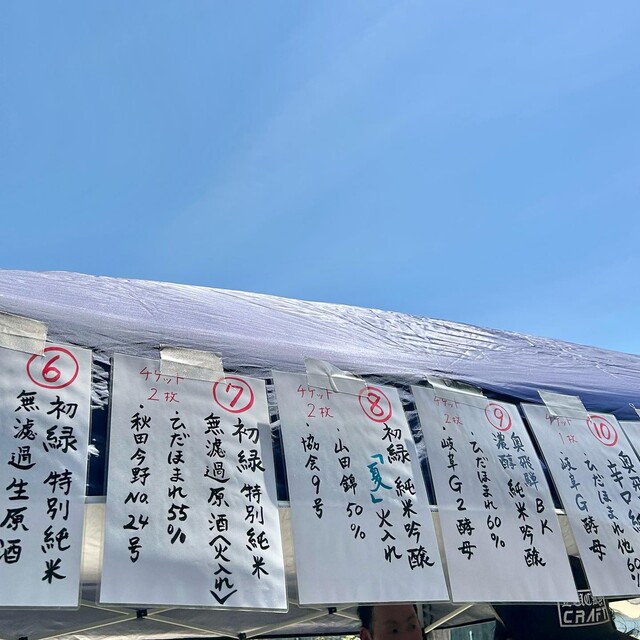 ⑥
初緑 特別純米
無濾過生原酒
⑦
初緑 特別純米
無濾過原酒<火入れ>
チケット
2枚
・ひだほまれ55%
・秋田今野No.24号
⑧
初緑 純米吟醸
「夏」火入れ
チケット
2枚
・山田錦50%
・協会9号
⑨
奥飛騨 BK
濃醇 純米吟醸
チケット
2枚
・ひだほまれ60%
・岐阜G2酵母
⑩
奥飛
辛口
チケット
枚
・ひだほまれ他60
・岐阜G酵母
CRAFT